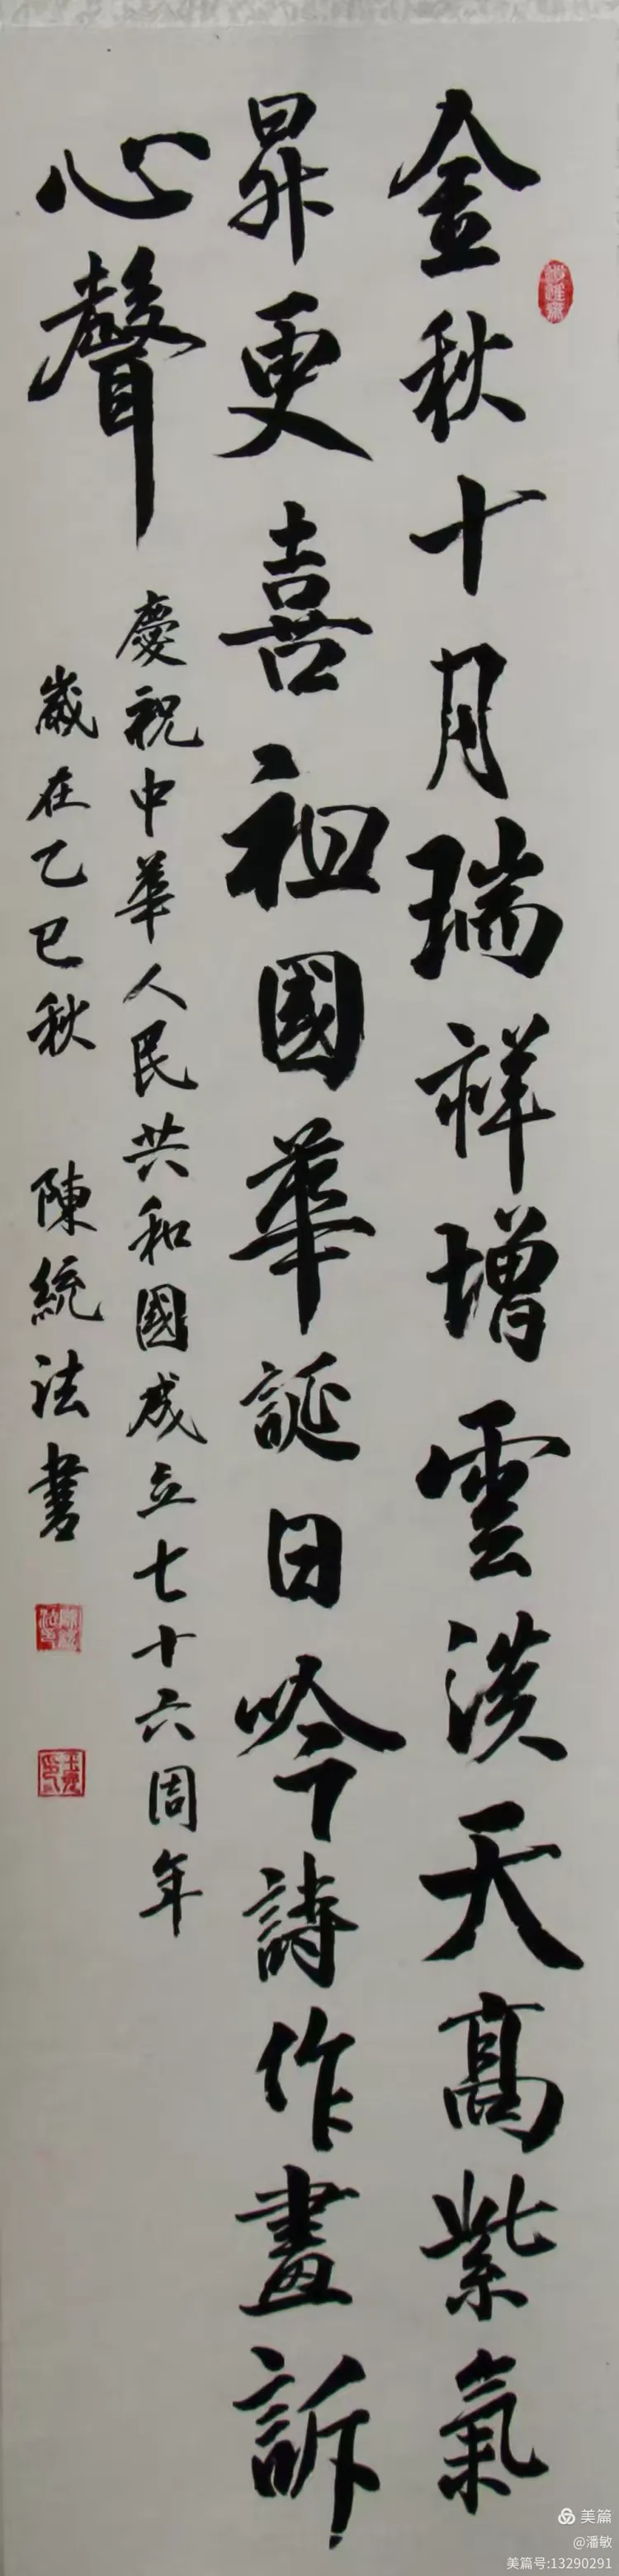 金秋十月瑞祥增雲淡天高紫氣
昇更喜祖國華誕日吟詩作畫訴
心聲
慶祝中華人民共和國成立七十六周年
歲在乙巳秋 陳統法書
美篇
@潘敏
美篇号:13290291